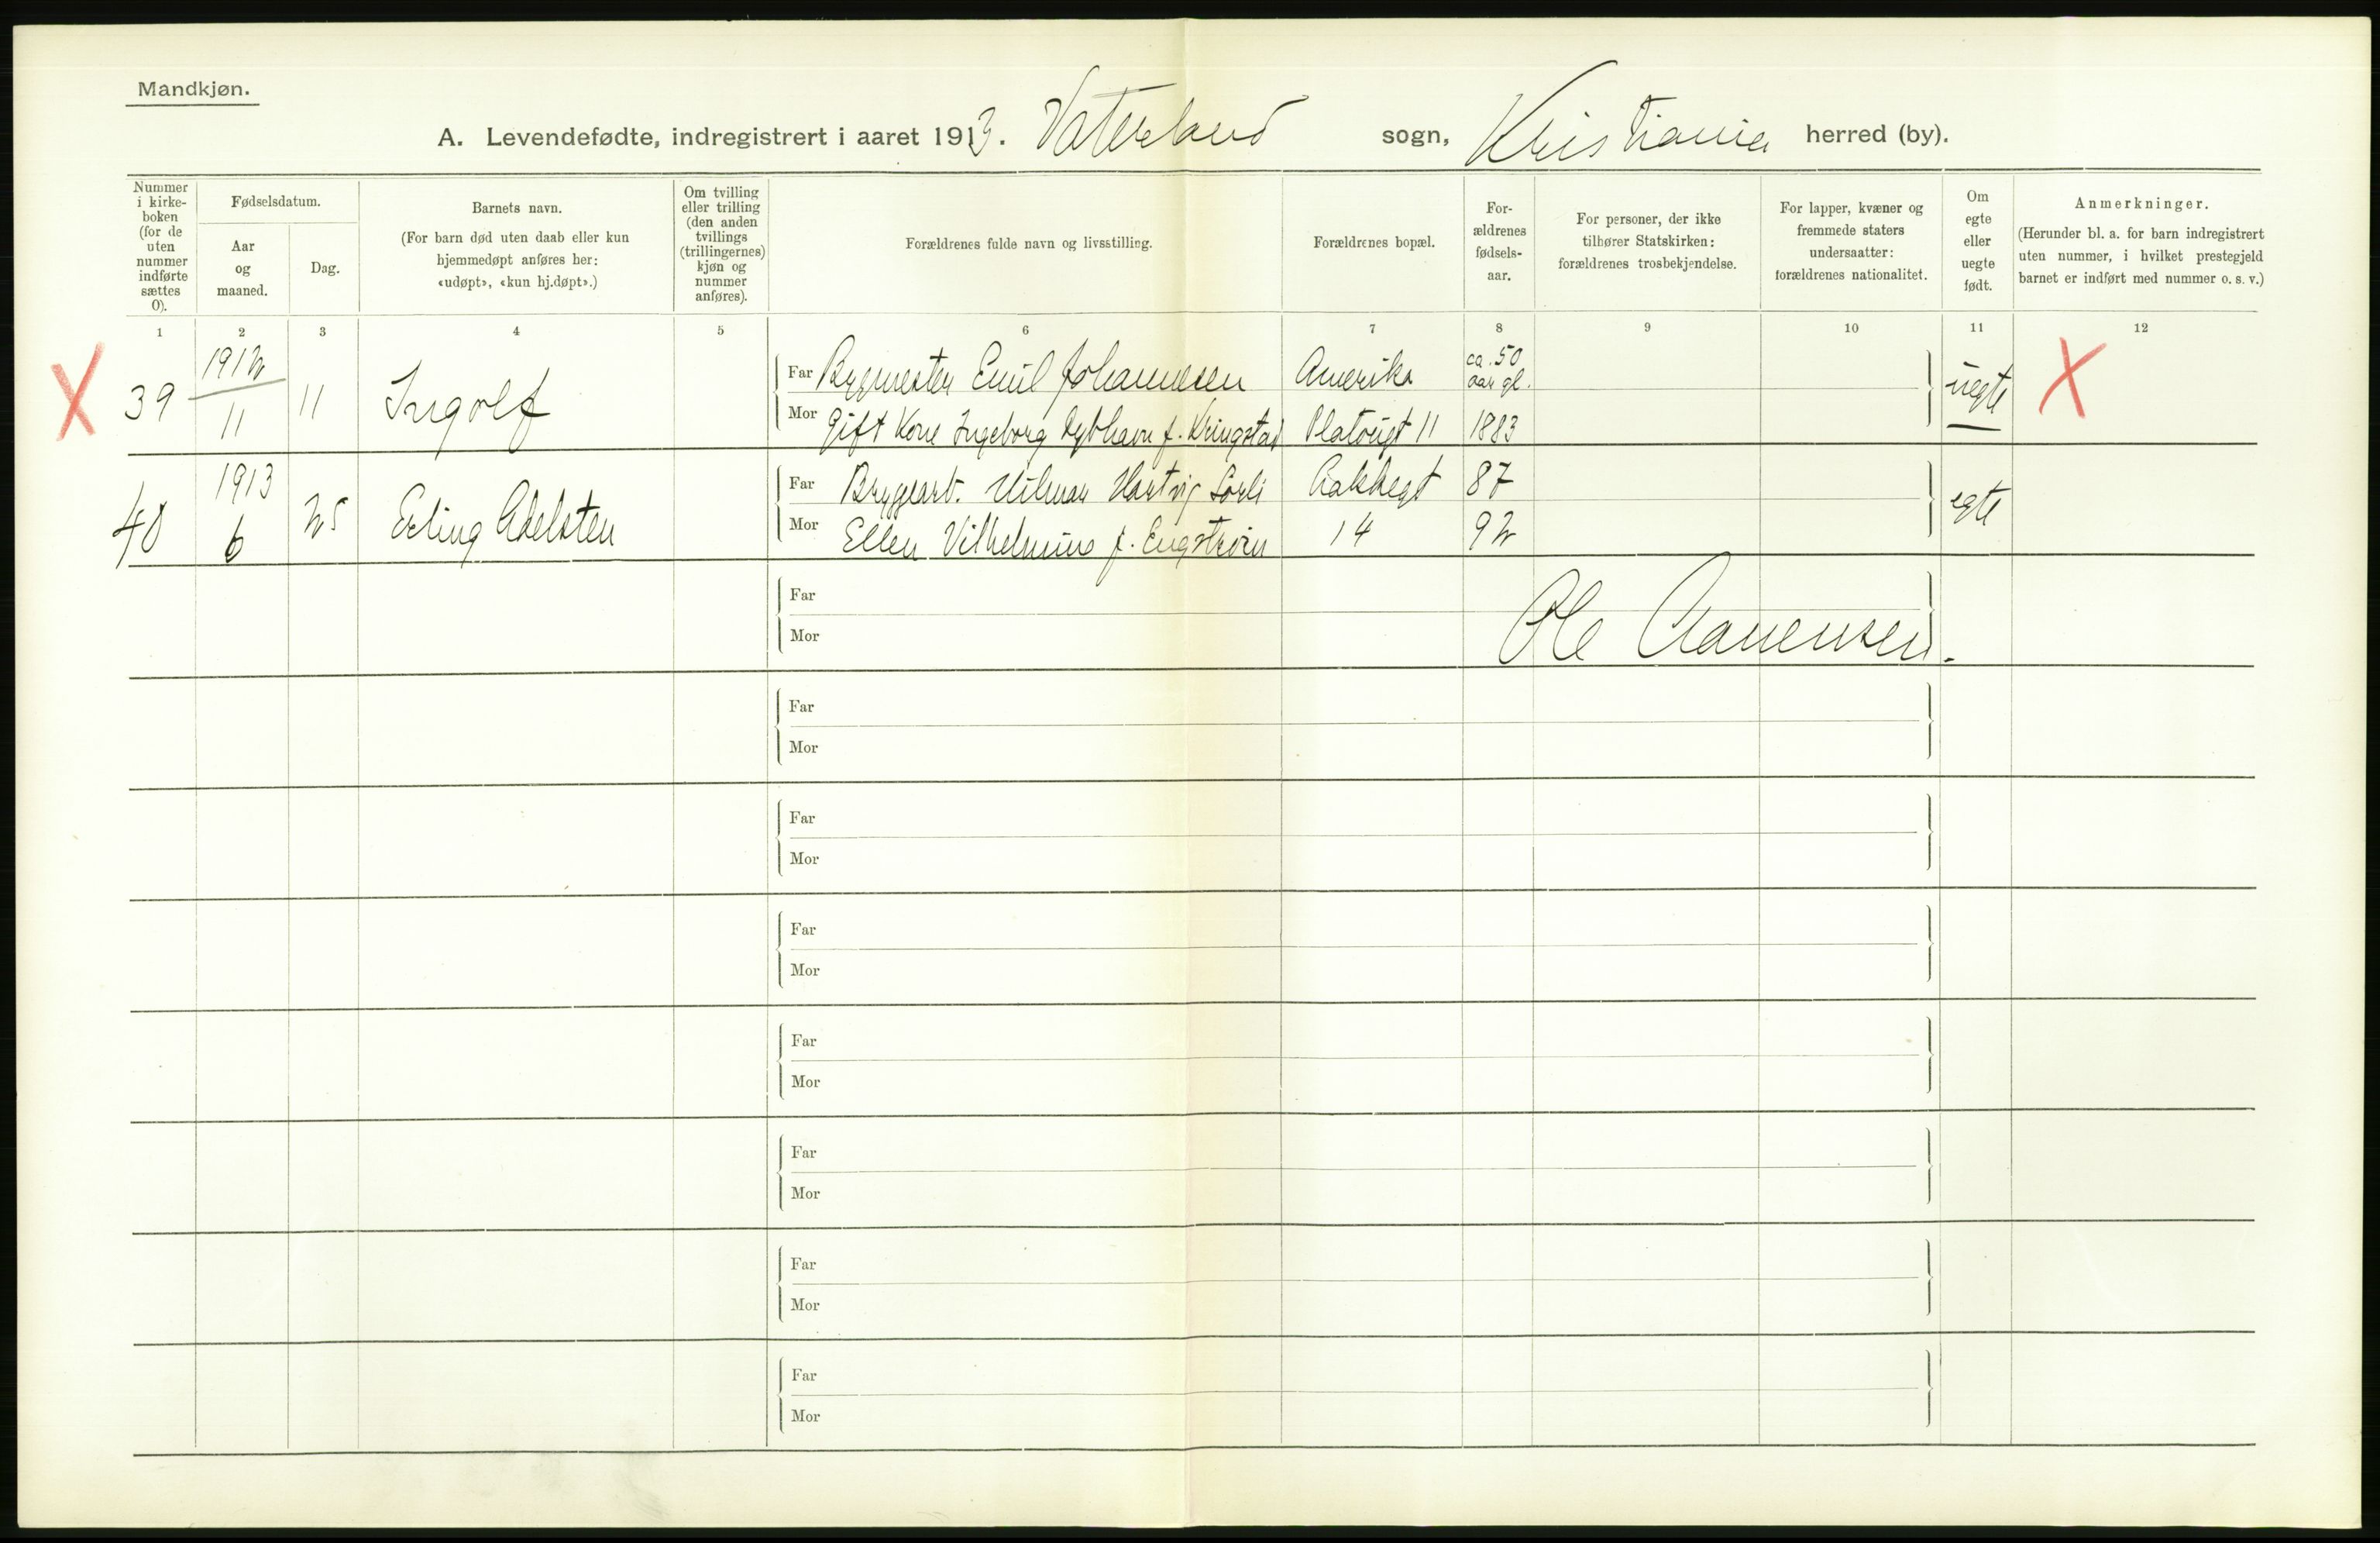 Mandkjøn.
A. Levendefødte, indregistrert i aaret 1913. Vaterland sogn, Kristiania herred (by).
Nummer i kirkeboken (for de uten nummer indførte sættes 0).
Fødselsdatum.
Aar og maaned.
Dag.
Barnets navn.
(For barn død uten daab eller kun hjemmedøpt anføres her: «udøpt», «kun hj.døpt».)
Om tvilling eller trilling (den anden tvillings (trillingernes) kjøn og nummer anføres).
Forældrenes fulde navn og livsstilling.
Forældrenes bopæl.
Forældrenes fødselsaar.
For personer, der ikke tilhører Statskirken: forældrenes trosbekjendelse.
For lapper, kvæner og fremmede staters undersaatter: forældrenes nationalitet.
Om egte eller uegte født.
Anmerkninger.
(Herunder bl. a. for barn indregistrert uten nummer, i hvilket prestegjeld barnet er indført med nummer o. s. v.)
1 2 3 4 5 6 7 8 9 10 11 12
X 39 1912 11 11 Ingolf
Far Bygmester Emil Johannesen Amerika ca. 50 aar gl. uegte X
Mor Gift Kone Ingeborg f. Kringstad Platougt 11 1883
40 1913 6 25 Erling Adelsten
Far Bryggearb. Hilmar Hartvig Sørli Aakebgt 87 egte
Mor Ellen Vilhelmine f. Engstrøm 14 92
Far
Mor
Ole Aanensen.
Far
Mor
Far
Mor
Far
Mor
Far
Mor
Far
Mor
Far
Mor
Far
Mor